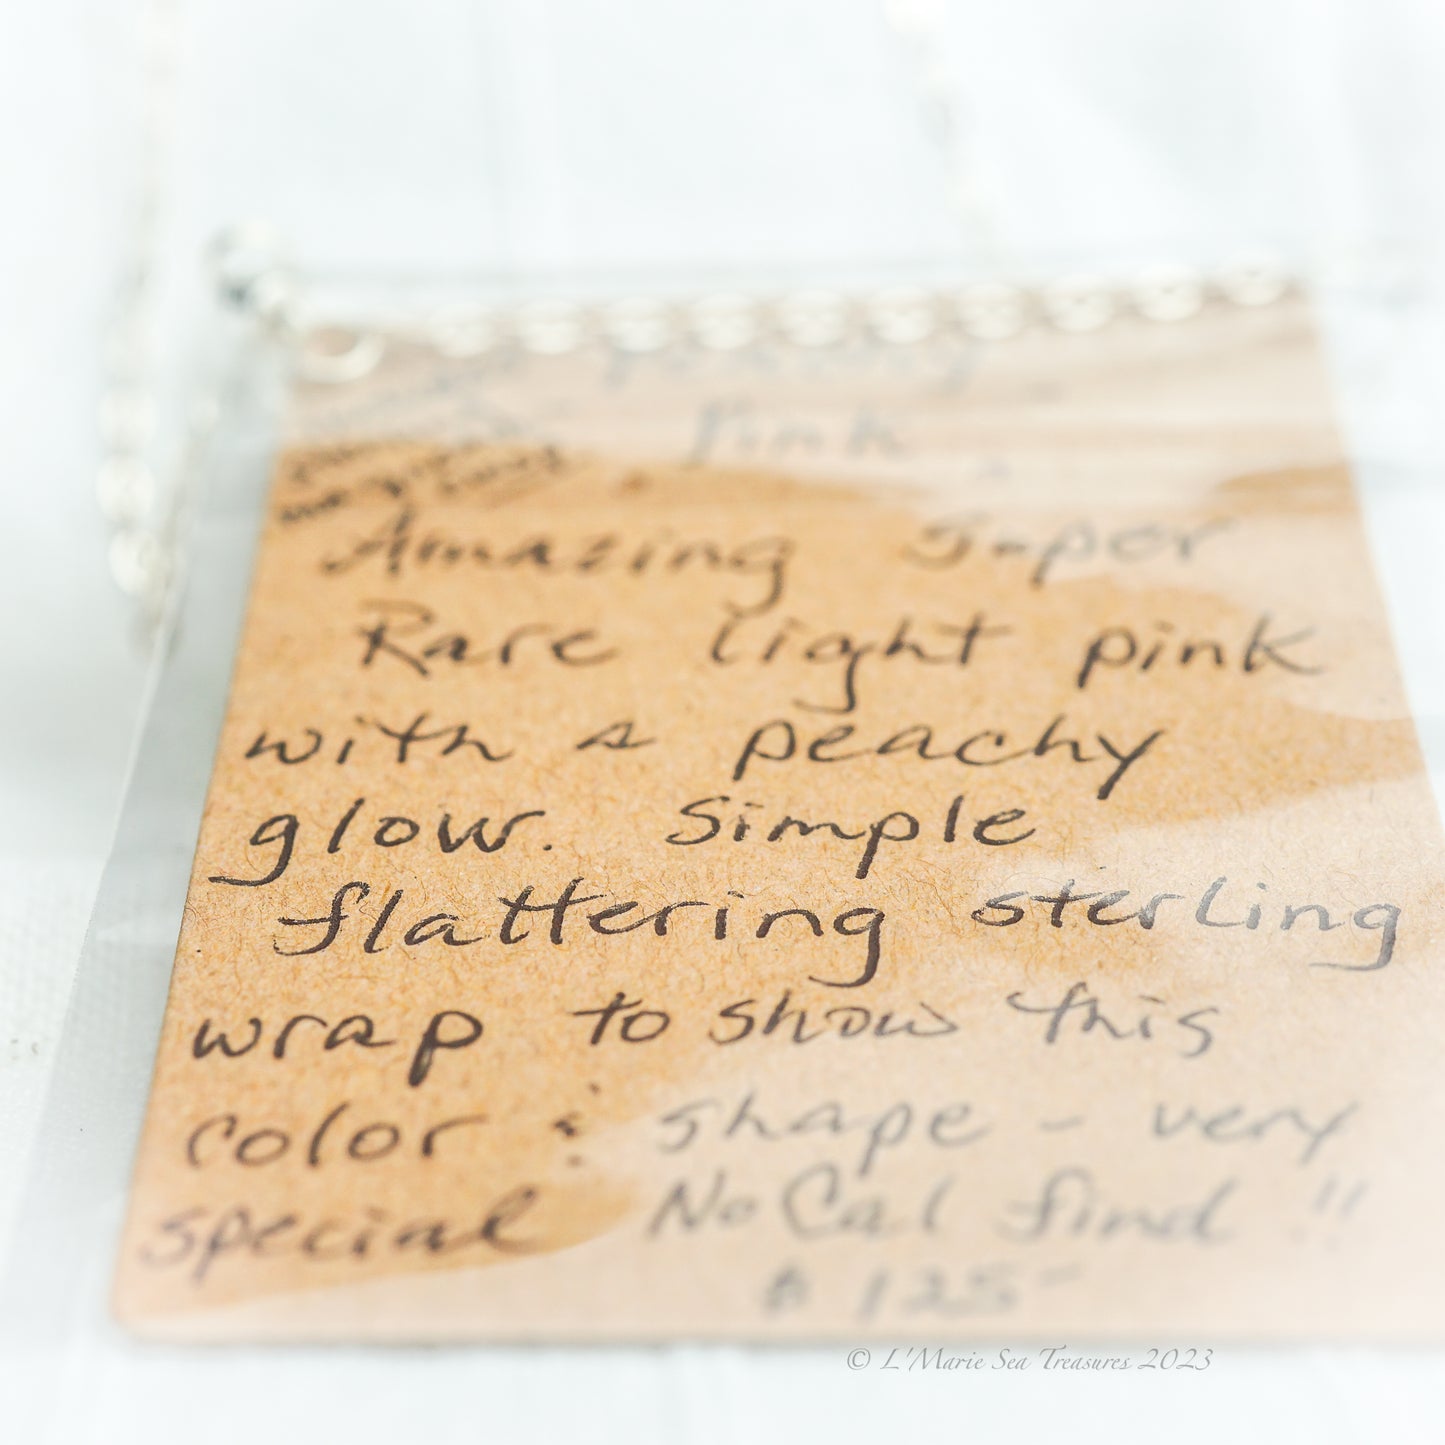 Pink
Amazing super
Rare light pink
with a peachy
glow. Simple
flattering sterling
wrap to show this
color & shape - very
special NoCal find !!
$125-
© L'Marie Sea Treasures 2023